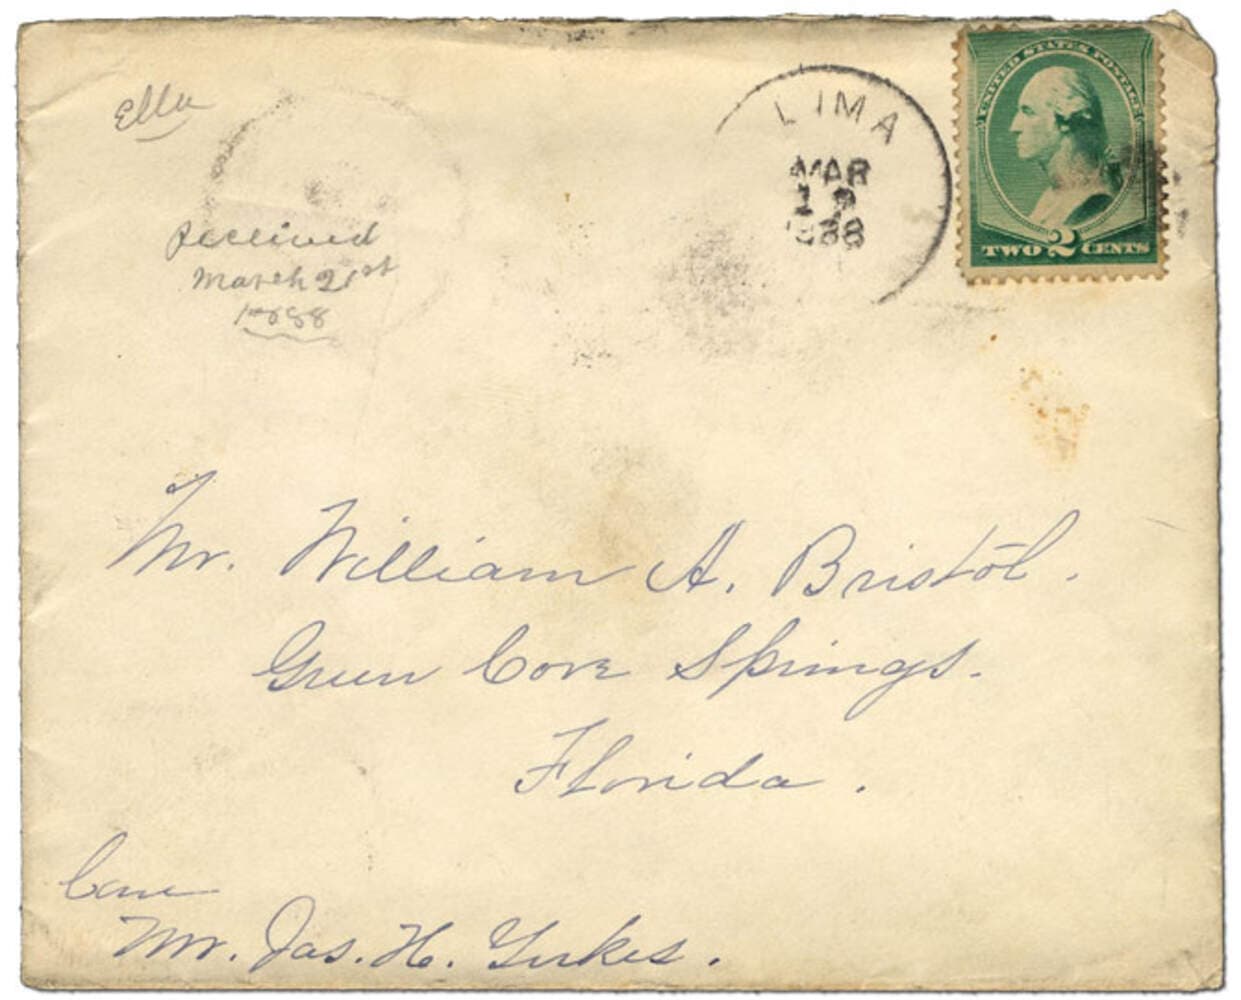 Ella
Received
March 21st
1888
LIMA
MAR
1888
UNITED STATES POSTAGE
TWO 2 CENTS
Mr. William A. Bristol.
Green Cove Springs.
Florida.
Care
Mr. Jas. H. Yerkes.